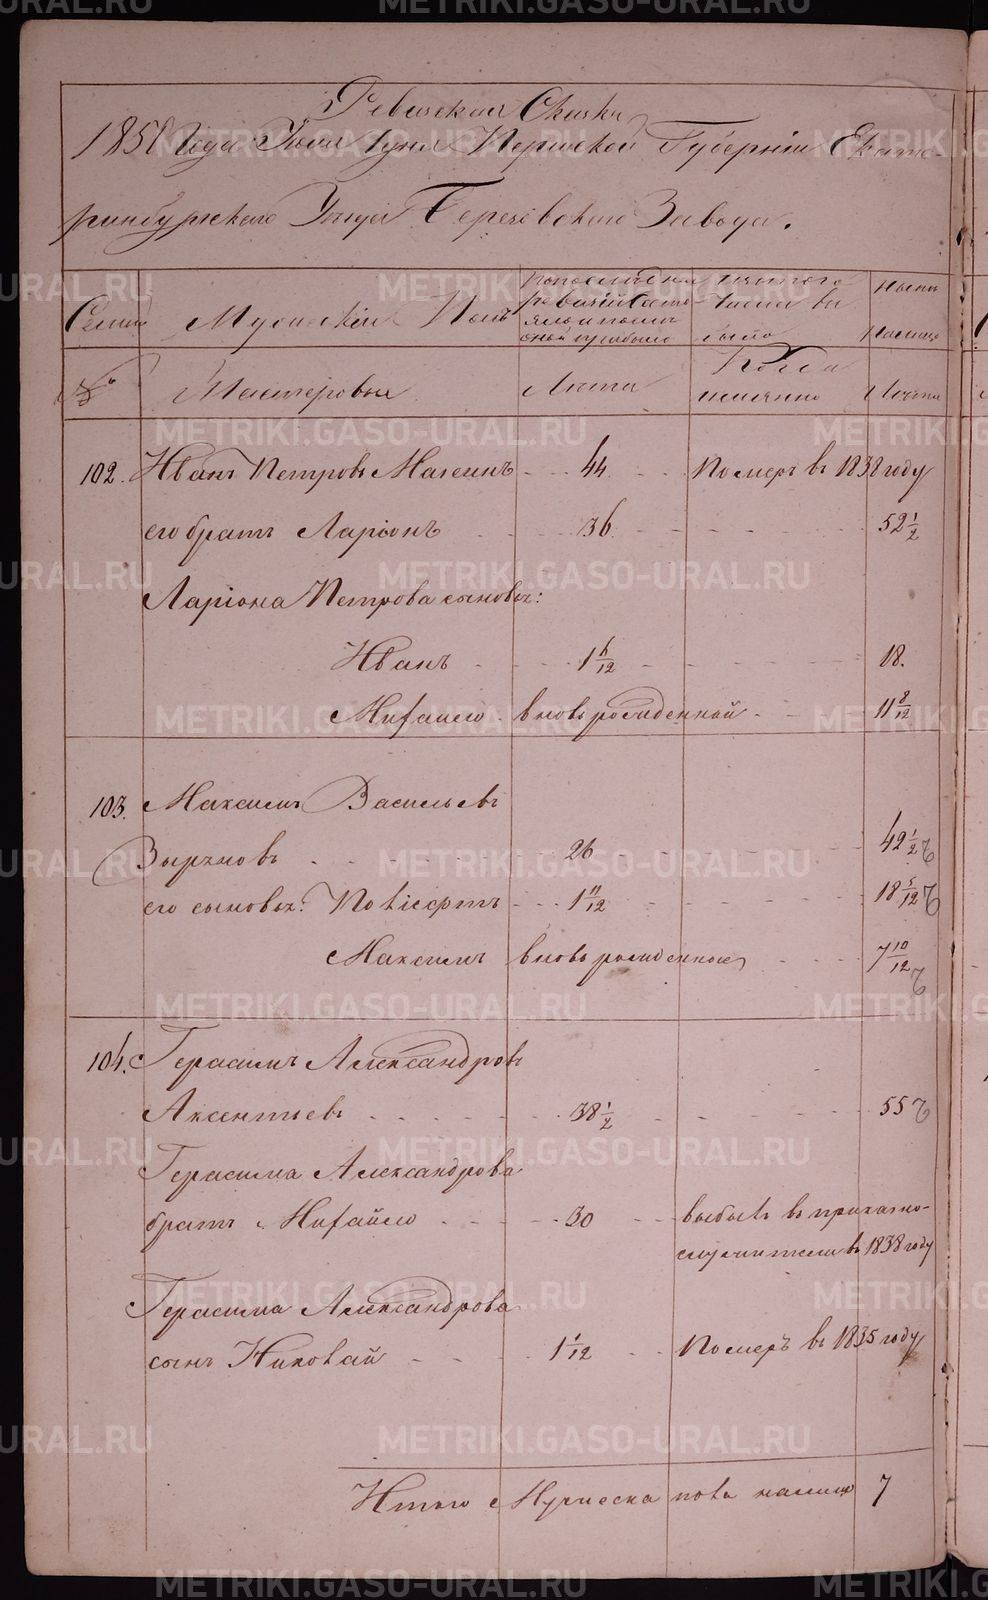 METRIKI.GASO-URAL.RU
Ревизская Сказка
1850 Года дня Пермской Губернiи Екате-
ринбургского Уезда Березовского Завода.
Семьи
Мужескiй Полъ
По последней
ревизiи состо
было
изъ того
числа вы
было
Ныне
на лицо
№
Мастеровые
Лета
Когда
именно
Лета
102. Иванъ Петровъ Макинъ 44 Померъ въ 1838 году
его братъ Ларiонъ 36 52 1/2
Ларiона Петрова сыновья:
Иванъ 1 6/12 18.
Михайло вновь рожденной 11 8/12
103. Максимъ Васильевъ
Зыряновъ 26 42 1/2
его сыновья: Поликарпъ 1 11/12 18 5/12
Максимъ вновь рожденные 7 10/12
104. Герасимъ Александровъ
Аксентьевъ 38 1/2 55
Герасима Александрова
братъ Михайло 30 выбылъ въ приказно-
служители въ 1838 году
Герасима Александрова
сынъ Николай 1 1/12 Померъ въ 1835 году
Итого Мужеска пола налицо 7